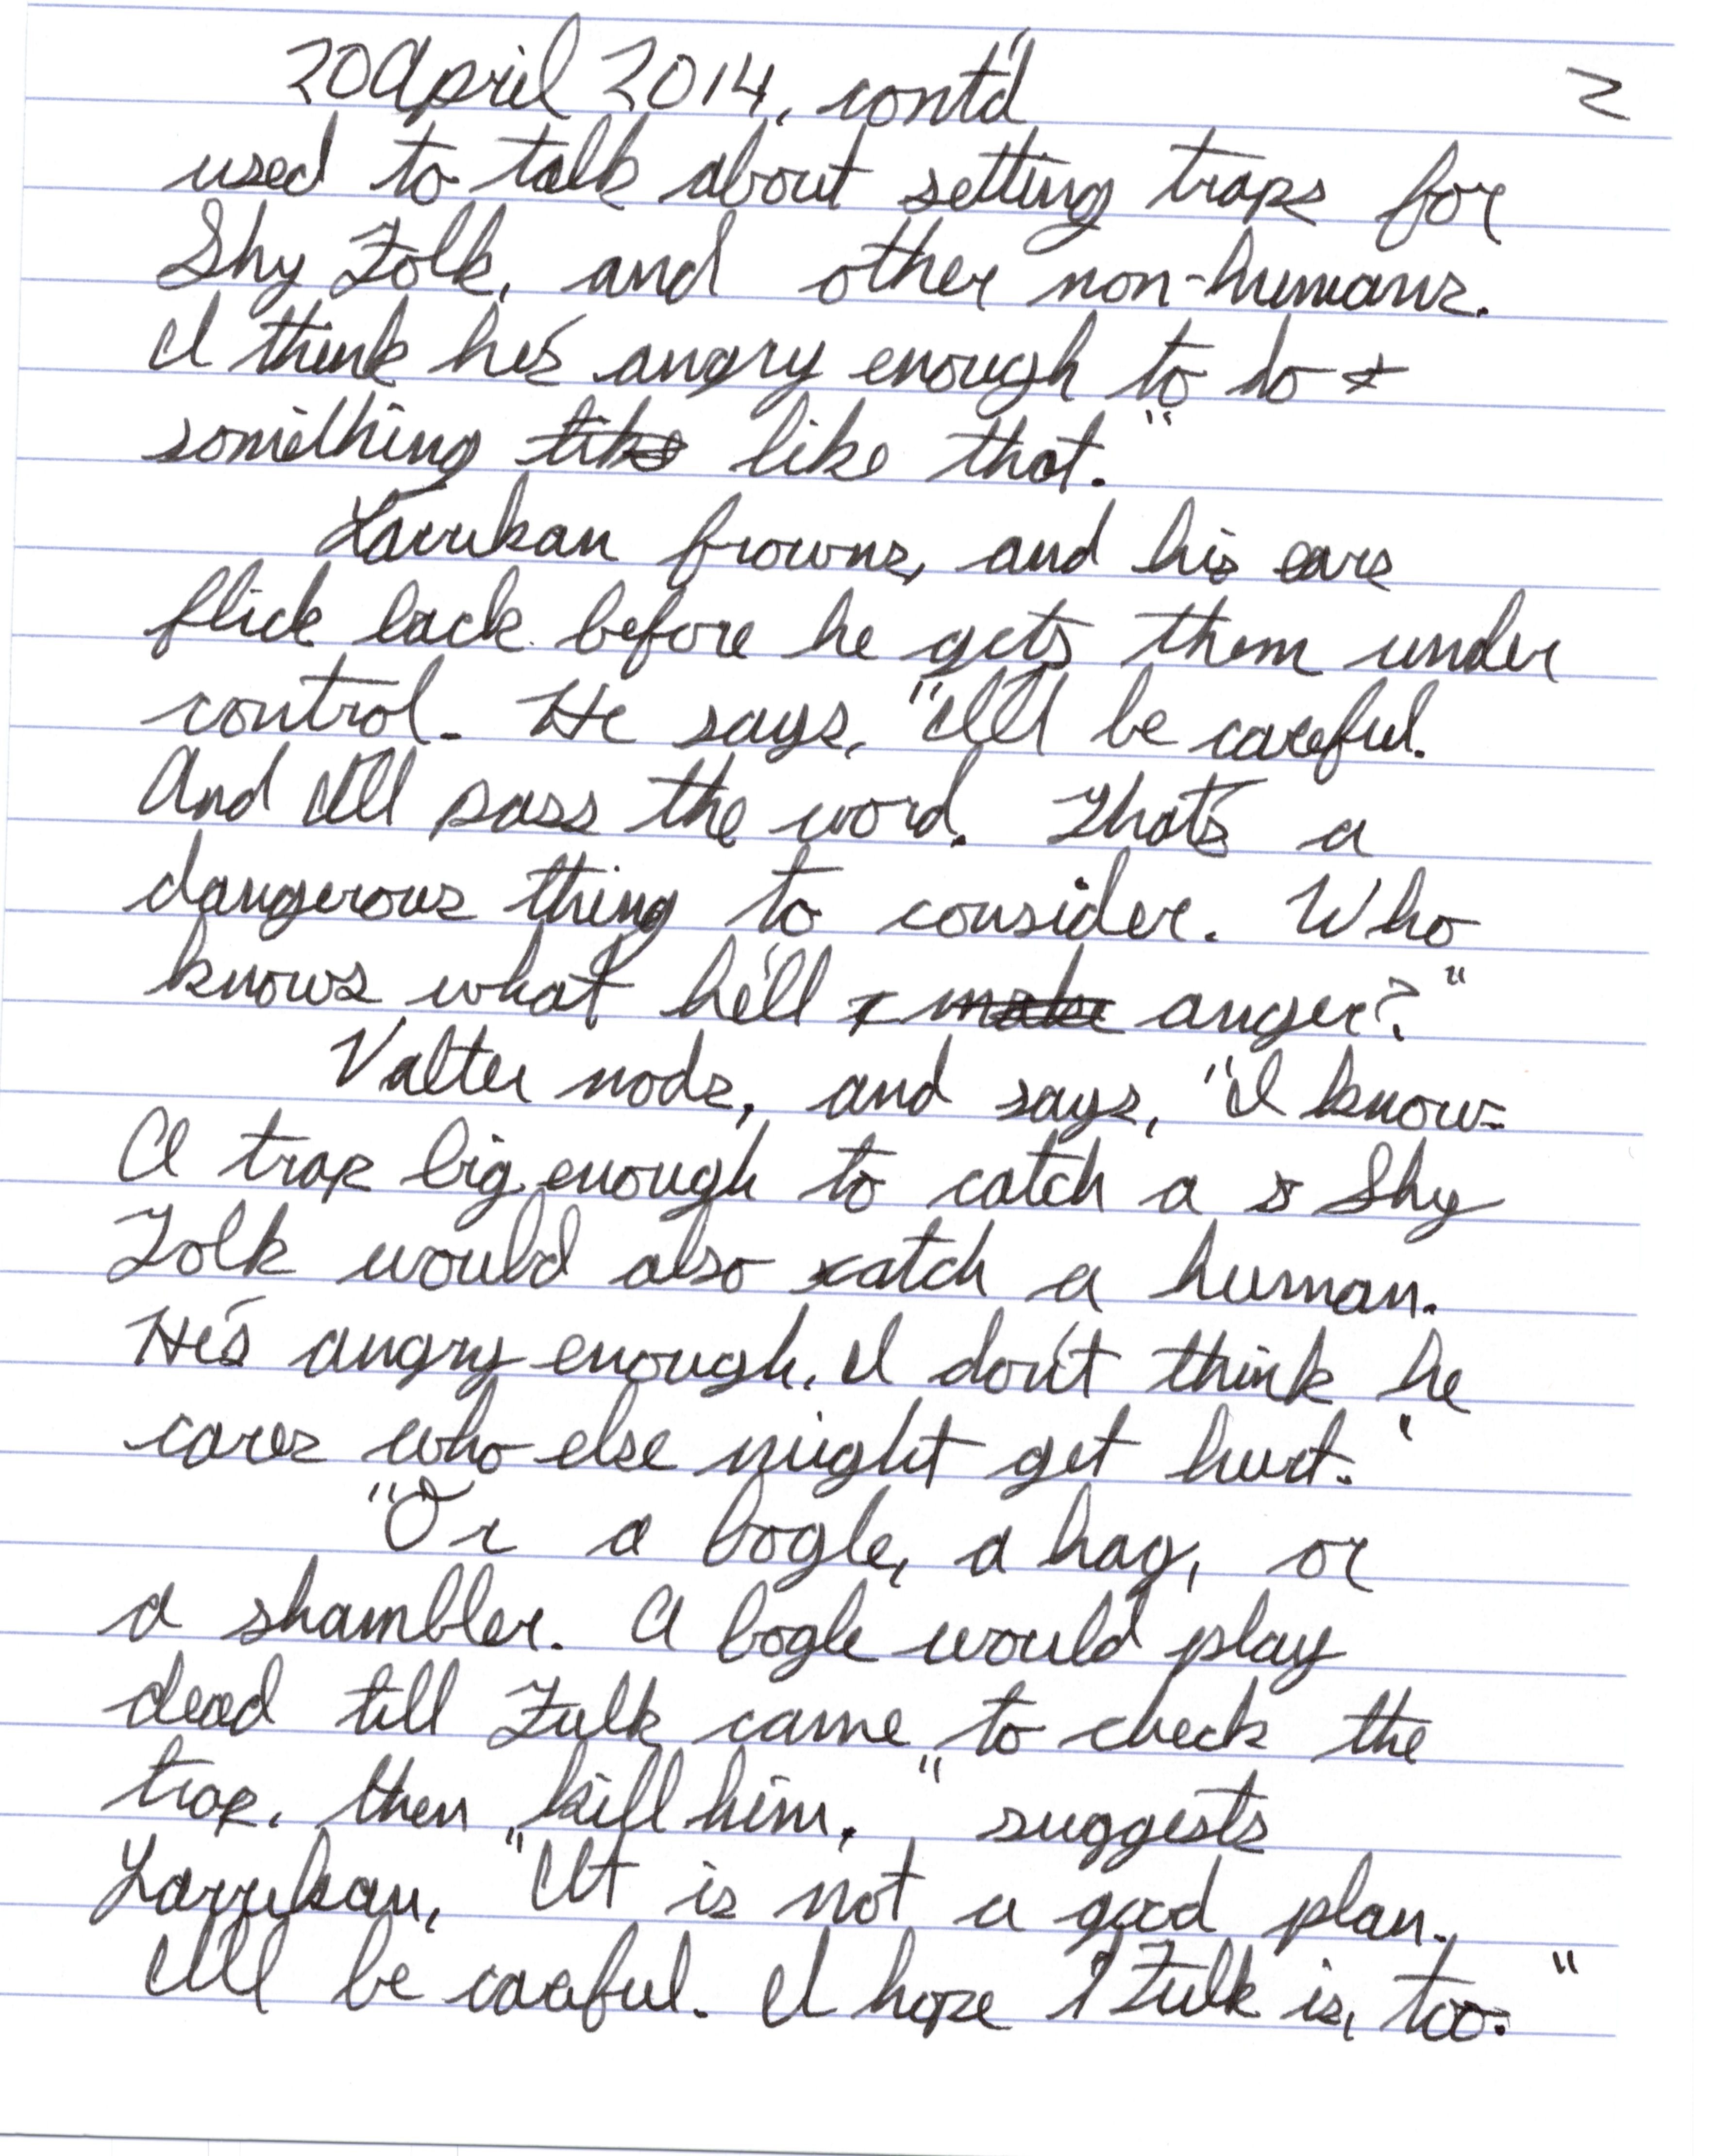 20 April 2014, cont'd 2
used to talk about setting traps for
Shy Folk, and other non-humans.
I think he's angry enough to do
something like like that."
Larrikan frowns, and his ears
flick back before he gets them under
control. He says, "I'll be careful.
And I'll pass the word. That's a
dangerous thing to consider. Who
knows what he'll make anger?"
Valter nods, and says, "I know.
A trap big enough to catch a s Shy
Folk would also catch a human.
He's angry enough, I don't think he
cares who else might get hurt."
"Or a bogle, a hag, or
a shambler. A bogle would play
dead till Fulk came to check the
trap, then kill him," suggests
Larrikan, "It is not a good plan.
I'll be careful. I hope Fulk is, too."